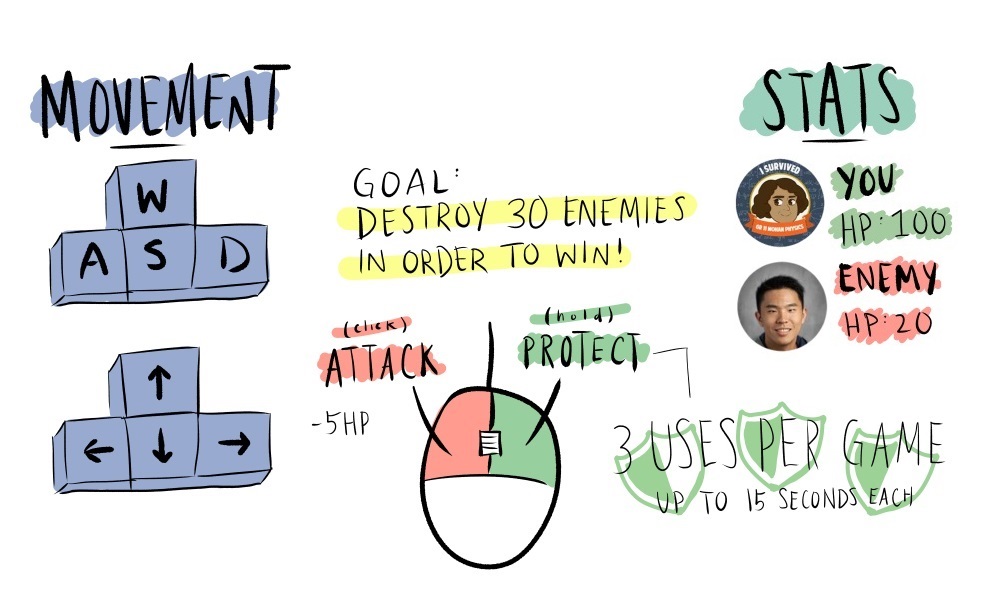 MOVEMENT
W
A S D
↑
← ↓ →
GOAL:
DESTROY 30 ENEMIES
IN ORDER TO WIN!
(click)
ATTACK
-5HP
(hold)
PROTECT
3 USES PER GAME
UP TO 15 SECONDS EACH
STATS
I SURVIVED
GR 11 MCNAN PHYSICS
YOU
HP: 100
ENEMY
HP: 20